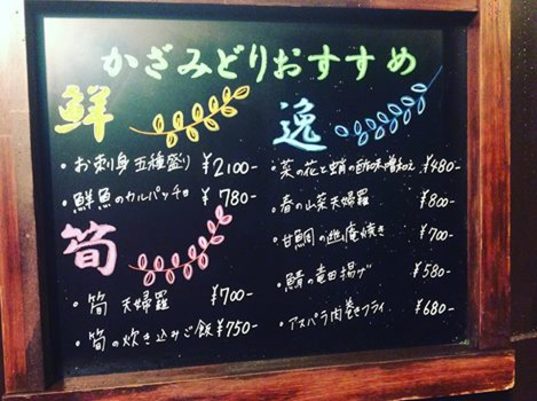 かざみどりおすすめ
鮮
・お刺身 五種盛り ¥2100-
・鮮魚のカルパッチョ ¥780-
筍
・筍 天婦羅 ¥700-
・筍の炊き込みご飯 ¥750-
逸
・菜の花と蛸の酢味噌和え ¥480-
・春の山菜天婦羅 ¥800-
・甘鯛の幽庵焼き ¥700-
・鯖の竜田揚げ ¥580-
・アスパラ肉巻きフライ ¥680-